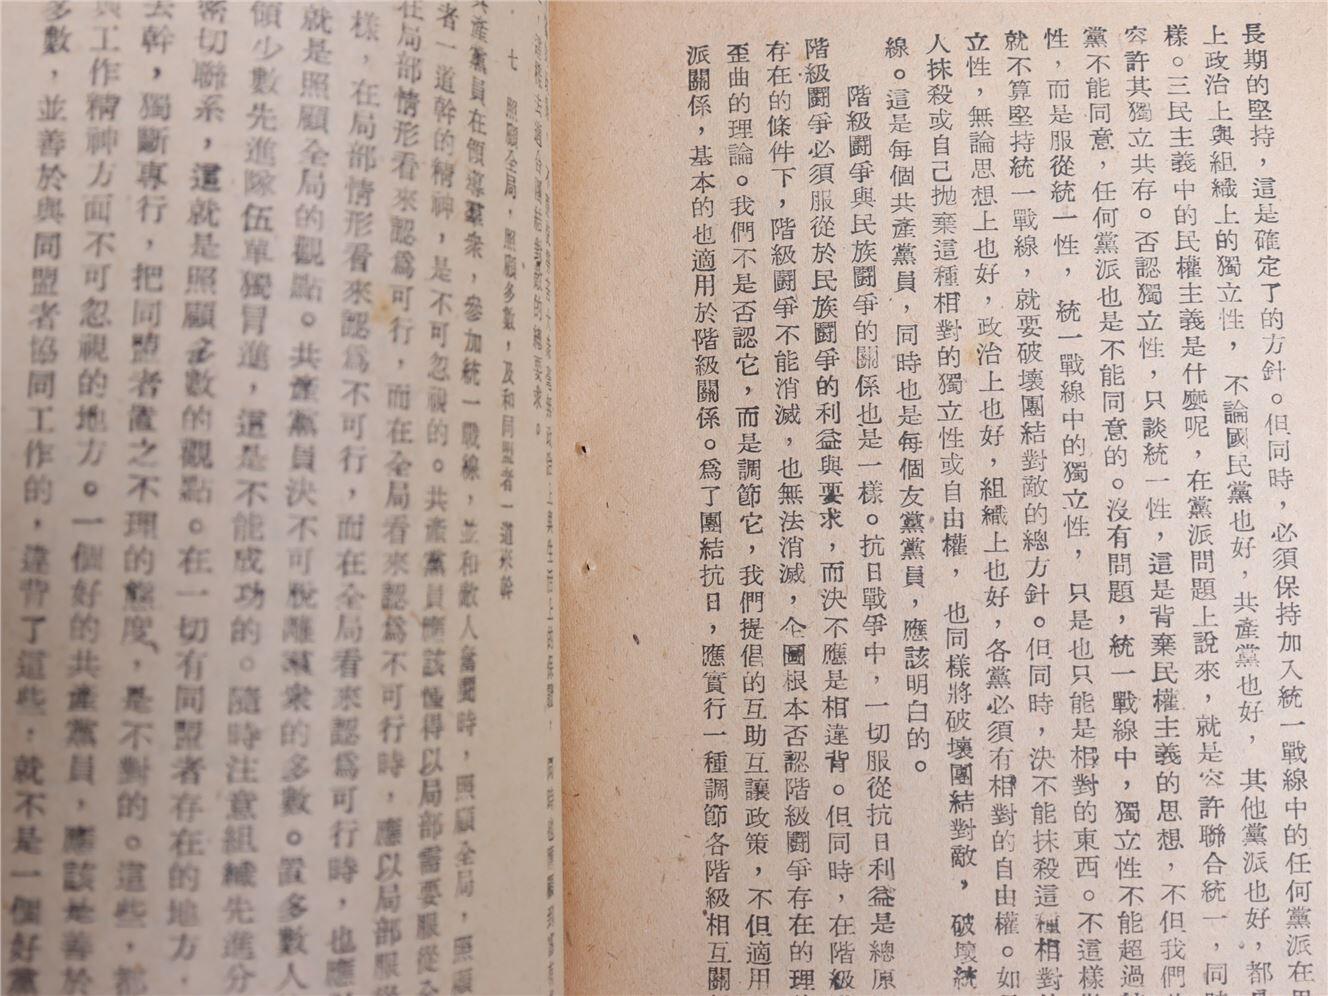 長期的堅持，這是確定了的方針。但同時，必須保持加入統一戰線中的任何黨派在思
上政治上與組織上的獨立性，不論國民黨也好，共產黨也好，其他黨派也好，都
樣。三民主義中的民權主義是什麽呢，在黨派問題上說來，就是容許聯合統一，同時
容許其獨立共存。否認獨立性，只談統一性，這是背棄民權主義的思想，不但我們
黨不能同意，任何黨派也是不能同意的。沒有問題，統一戰線中，獨立性不能超過
性，而是服從統一性，統一戰線中的獨立性，只是也只能是相對的東西。不這樣
就不算堅持統一戰線，就要破壞團結對敵的總方針。但同時，決不能抹殺這種相對
立性，無論思想上也好，政治上也好，組織上也好，各黨必須有相對的自由權。如
人抹殺或自己抛棄這種相對的獨立性或自由權，也同樣將破壞團結對敵，破壞統
線。這是每個共產黨員，同時也是每個友黨黨員，應該明白的。
階級鬪爭與民族鬪爭的關係也是一樣。抗日戰爭中，一切服從抗日利益是總原
階級鬪爭必須服從於民族鬪爭的利益與要求，而決不應是相違背。但同時，在階級
存在的條件下，階級鬪爭不能消滅，也無法消滅，企圖根本否認階級鬪爭存在的理
歪曲的理論。我們不是否認它，而是調節它，我們提倡的互助互讓政策，不但適用
派關係，基本的也適用於階級關係。爲了團結抗日，應實行一種調節各階級相互關
七　照顧全局，照顧多數，及和同盟者一道來幹
共產黨員在領導羣衆，參加統一戰線，並和敵人奮鬪時，照顧全局，照顧
者一道幹的精神，是不可忽視的。共產黨員應該懂得以局部需要服從全
在局部情形看來認爲可行，而在全局看來認爲不可行時，應以局部服從
樣，在局部情形看來認爲不可行，而在全局看來認爲可行時，也應
就是照顧全局的觀點。共產黨員決不可脫離羣衆的多數。置多數人
領少數先進隊伍單獨冒進，這是不能成功的。隨時注意組織先進分
密切聯系，這就是照顧多數的觀點。在一切有同盟者存在的地方，
去幹，獨斷專行，把同盟者置之不理的態度，是不對的。這些，都
與工作精神方面不可忽視的地方。一個好的共產黨員，應該是善於
多數，並善於與同盟者協同工作的，違背了這些，就不是一個好黨